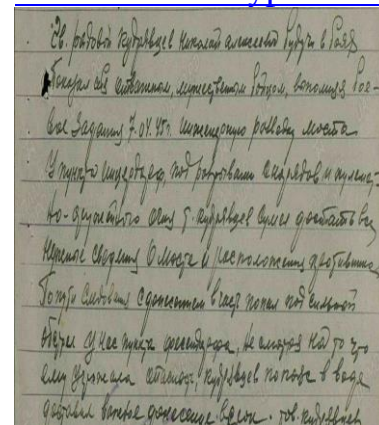 Гв. рядовой Кудрявцев Николай Алексеевич Будучи в Боях
Показал себя отважным, мужественным Бойцом, выполняя Бое-
вое Задание 7.04.45г. инженерную разведку моста
У пункта под разрывами снарядов и пулемет-
но-ружейного огня т. Кудрявцев сумел достать все
нужные сведения О мосте и расположения противника.
По пути следования с донесением в часть попал под сильный
обстрел У нас. пункта не смотря на то что
ему Угрожала опасность, Кудрявцев по пояс в воде
доставил важное донесение в срок. тов. Кудрявцев